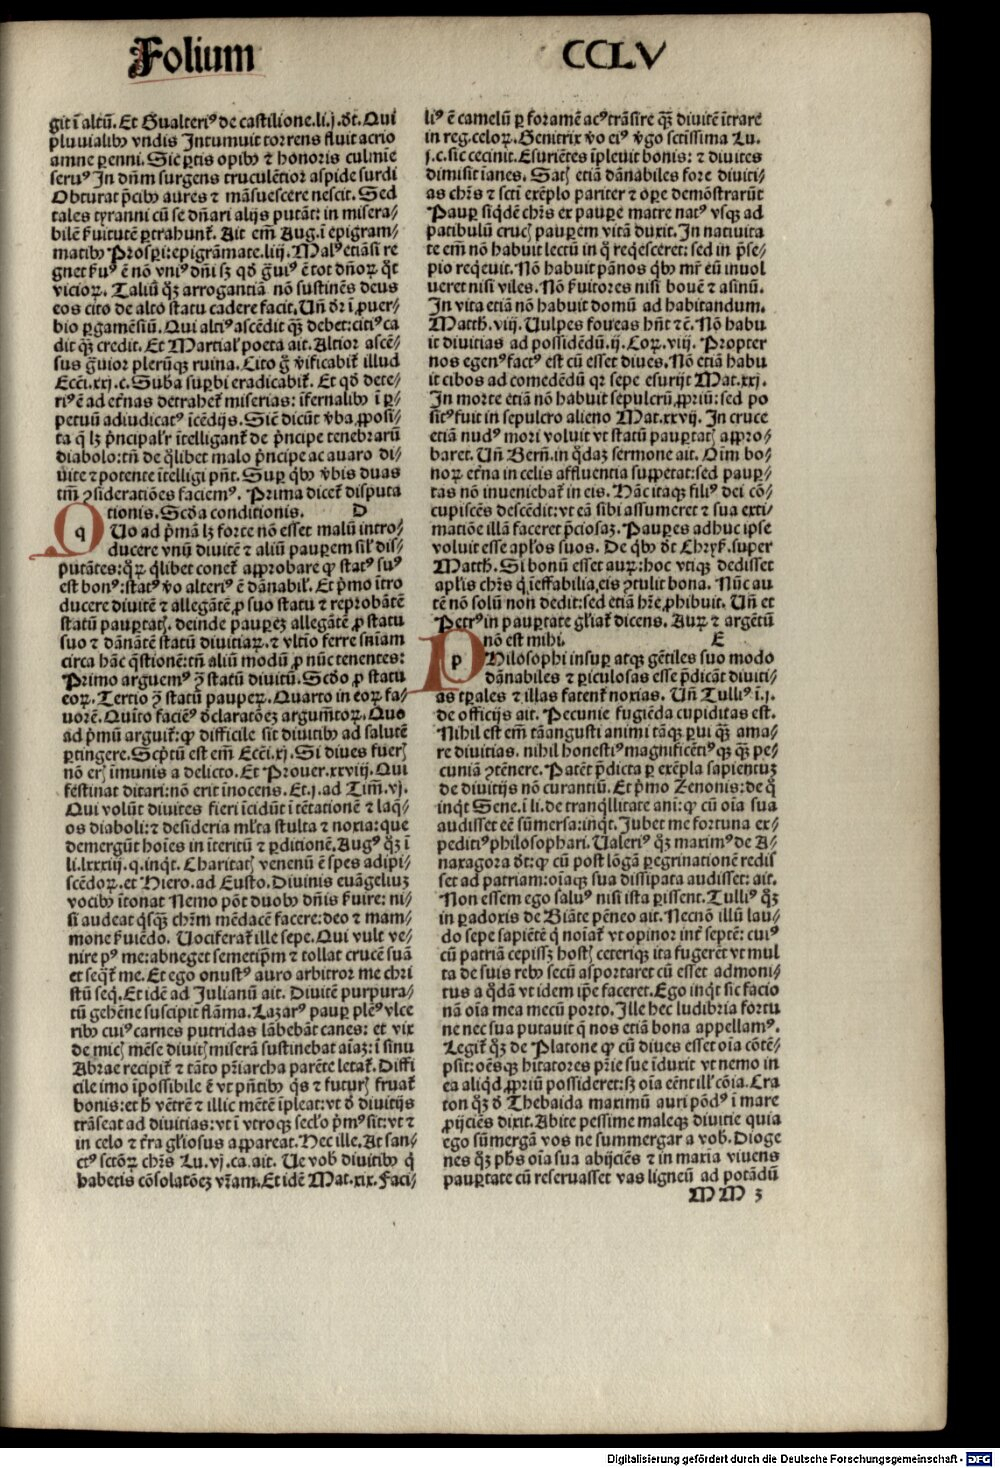 Folium CCLV
git ī altū. Et Gualteriꝰ de castilione. li. j. dt. Qui
pluuialibꝰ vndis Intumuit torrens fluit acrio
amne ꝑenni. Sic ꝑtis opibꝰ ⁊ honoris culmīe
seruꝰ In dn̄m surgens truculētior aspide surdi
Obturat p̄cibꝰ aures ⁊ māsuescere nescit. Sed
tales tyranni cū se dn̄ari alijs putāt: in misera⸗
bilē ẜuitutē ꝑtrahunt̉. Ait em̄ Aug. ī epigram⸗
matibꝰ Prosperi: epigrāmate. liij. Malꝰ etiāsi re
gnet ẜuꝰ ē nō vniꝰ dn̄i sꝫ qd̄ g̈uiꝰ ē tot dn̄oꝝ q̄t
vicioꝝ. Taliū qꝫ arrogantiā nō sustinēs deus
eos cito de alto statu cadere facit. Vn̄ dr̄ ī ꝓuer⸗
bio ꝑgamēsiū. Qui altiꝰ ascēdit qꝫ debet: citiꝰ ca
dit qꝫ credit. Et Martial' poeta ait. Altior ascē⸗
sus g̈uior plerūqꝫ ruina. Cito g̊ v̉ificabit̉ illud
Ecēi. xxj. c. Suba sup̱bi eradicabit̉. Et qd̄ dete⸗
riꝰ ē ad et̉nas detrahet̉ miserias: īfernalibꝰ ī ꝑ⸗
petuū adiudicatꝰ īcēdijs. Sic̄ dicūt v̉ba ꝓposi⸗
ta q̄ lꝫ p̄ncipal'r ītelligant̉ de p̄ncipe tenebrarū
diabolo: tn̄ de q̄libet malo p̄ncipe ac auaro di⸗
uite ⁊ potente ītelligi pn̄t. Suꝑ qibꝰ v̉bis duas
tm̄ ꝯsideratiōes faciemꝰ. Prima dicet̉ disputa
tionis. Scd̄a conditionis. D
Quo ad p̄mā lꝫ forte nō esset malū intro⸗
ducere vnū diuitē ⁊ aliū pauꝑem sil' dis⸗
putātes: qꝝ q̄libet conet̉ approbare ꝙ statꝰ suꝰ
est bonꝰ: statꝰ v̊o alteriꝰ ē dānabil'. Et p̄mo ītro
ducere diuitē ⁊ allegātē ꝓ suo statu ⁊ reprobātē
statū pauꝑtatis. deinde pauꝑeꝫ allegātē ꝓ statu
suo ⁊ dānātē statū diuitiaꝝ. ⁊ vltīo ferre sn̄iam
circa hāc q̄stionē: tn̄ aliū modū ꝓ nūc tenentes:
Primo arguemꝰ ꝯ̄ statū diuitū. Scd̄o ꝓ statu
eoꝝ. Tertio ꝯ̄ statū pauꝑeꝝ. Quarto in eoꝝ fa⸗
uorē. Quīto faciēꝰ d̉claratōeꝫ argum̄toꝝ. Quo
ad p̄mū arguit̉: ꝙ difficile sit diuitibꝰ ad salutē
ꝑtingere. Scp̄tū est em̄ Ecēi. xj. Si diues fueris
nō eris īmunis a delicto. Et Prouer. xxviij. Qui
festinat ditari: nō erit inocens. Et. j. ad Tim̄. vj.
Qui volūt diuites fieri īcidūt ī tētationē ⁊ laq̄⸗
os diaboli: ⁊ desideria ml'ta stulta ⁊ noxia: que
demergūt hoīes in īteritū ⁊ ꝑditionē. Augꝰ qꝫ ī
li. lxxxiij. q. inq̄t. Charitatis venenū ē spes adipi⸗
scēdoꝝ. et Hiero. ad Eusto. Diuinis euāgeliuꝫ
vocibꝰ ītonat Nemo pōt duobꝰ dn̄is ẜuire: ni⸗
si audeat q̄sqꝫ chr̄m mēdacē facere: deo ⁊ mam⸗
mone ẜuiēdo. Uocifera̧t̉ ille sepe. Qui vult ve⸗
nire pꝰ me: abneget semetip̄m ⁊ tollat crucē suā
et seq̄t̉ me. Et ego onustꝰ auro arbitror me chri
stū seq̄. Et idē ad Julianū ait. Diuitē purpura⸗
tū gehēne suscipit flāma. Lazarꝰ pauꝑ plēꝰ vlce
ribꝰ cuiꝰ carnes putridas lābebāt canes: et vix
de micis mēse diuitis miserā sustinebat aīaꝫ: ī sinu
Abrae recipit̉ ⁊ tāto p̄riarcha parēte letat̉. Diffi
cile imo īpossibile ē vt pn̄tibꝰ q̄s ⁊ futuris fruat̉
bonis: et h̄ vētrē ⁊ illic mētē īpleat: vt d̉ diuitijs
trāseat ad diuitias: vt ī vtroqꝫ seclo p̄mꝰ sit: vt ⁊
in celo ⁊ t̉ra gl'iosus appareat. Hec ille. At san⸗
ctꝰ sctōꝝ chr̄s Lu. vj. ca. ait. Ue vob̄ diuitibꝰ q̄
habetis cōsolatōeꝫ vr̄am. Et idē Mat. xix. Faci⸗
liꝰ ē camelū ꝑ foramē acꝰ trāsire qꝫ diuitē ītrare
in reg. celoꝝ. Genitrix v̊o eiꝰ v̉go sctissima Lu.
j. c. sic cecinit. Esuriētes īpleuit bonis: ⁊ diuites
dimisit īanes. Satis etiā dānabiles fore diuiti⸗
as chr̄s ⁊ scti exēplo pariter ⁊ oꝑe demōstrarūt
Pauꝑ siq̄dē chr̄s ex pauꝑe matre natꝰ vsqꝫ ad
patibulū crucis pauꝑem vitā duxit. In natiuita
te em̄ nō habuit lectū in q̊ reqesceret: sed in p̄se⸗
pio req̄euit. Nō habuit pānos qibꝰ mr̄ eū inuol
ueret nisi viles. Nō ẜuitores nisi bouē ⁊ asinū.
In vita etiā nō habuit domū ad habitandum.
Matth. viij. Uulpes foueas hn̄t ⁊c̄. Nō habu
it diuitias ad possidēdū. ij. Coꝝ. viij. Propter
nos egenꝰ factꝰ est cū esset diues. Nō etiā habu
it cibos ad comedēdū qꝛ sepe esurijt Mat. xxj.
In morte etiā nō habuit sepulcrū ꝓpriū: sed po
sitꝰ fuit in sepulcro alieno Mat. xxvij. In cruce
etiā nudꝰ mori voluit vt statū pauꝑtatis appro⸗
baret. Un̄ Bern̄. in q̄daꝫ sermone ait. Oīm bo⸗
noꝝ et̉na in celis affluentia suppetat: sed pauꝑ⸗
tas nō inueniebat̉ in eis. Hāc itaqꝫ filiꝰ dei cō⸗
cupiscēs descēdit: vt eā sibi assumeret ⁊ sua exti⸗
matiōe illā faceret p̄ciosaꝫ. Pauꝑes adhuc ip̄se
voluit esse ap̄los suos. De qibꝰ dt Chrys̄. super
Matth. Si bonū esset auꝝ: hoc vtiqꝫ dedisset
ap̄lis chr̄s q̄ īeffabilia eis ꝯtulit bona. Nūc au
tē nō solū non dedit: sed etiā hr̄e ꝓhibuit. Un̄ et
Petrꝰ in pauꝑtate gl'iat̉ dicens. Auꝝ ⁊ argētū
nō est mihi. E
Philosophi insuꝑ atqꝫ gētiles suo modo
dānabiles ⁊ ꝑiculosas esse p̄dicāt diuiti⸗
as tꝑales ⁊ illas fatent̉ noxias. Un̄ Tulliꝰ ī. j.
de officijs ait. Pecunie fugiēda cupiditas est.
Nihil est em̄ tā angusti animi tāqꝫ ꝑui qꝫ ama⸗
re diuitias. nihil honestiꝰ magnificētiꝰqꝫ qꝫ pe⸗
cuniā ꝯtēnere. Patēt p̄dicta ꝑ exēpla sapientuꝫ
de diuitijs nō curantiū. Et p̄mo Zenonis: de q̊
inq̄t Sene. ī li. de tranq̄llitate ani: ꝙ cū oīa sua
audisset eē sūmersa: inq̄t. Jubet me fortuna ex⸗
peditiꝰ philosophari. Ualeriꝰ qꝫ maximꝰ de A⸗
naxagora dt: ꝙ cū post lōgā ꝑegrinationē redis
set ad patriam: oīaqꝫ sua dissipata audisset: ait.
Non essem ego saluꝰ nisi ista ꝑissent. Tulliꝰ qꝫ
in ꝑadoxis de Biāte pēneo ait. Necnō illū lau⸗
do sepe sapiētē q̄ noīat̉ vt opinor int̉ septē: cuiꝰ
cū patriā cepissꝫ hostis ceteriqꝫ ita fugerēt vt mul
ta de suis rebꝰ secū asportaret cū esset admoni⸗
tus a q̊dā vt idem ip̄e faceret. Ego inq̄t sic facio
nā oīa mea mecū porto. Ille hec ludibria fortu
ne nec sua putauit q̄ nos etiā bona appellamꝰ.
Legit̉ qꝫ de Platone ꝙ cū diues esset oīa cōtē⸗
psit: oēsqꝫ hītatores p̄rie sue īduxit vt nemo in
ea aliqd̄ ꝓpriū possideret: sꝫ oīa eēnt ill' cōia. Cra
ton qꝫ d̉ Thebaida maximū auri pōdꝰ ī mare
ꝓijciēs dixit. Abite pessime maleqꝫ diuitie quia
ego sūmergā vos ne summergar a vob̄. Dioge
nes qꝫ ph̄s oīa sua abijciēs ⁊ in maxīa viuens
pauꝑtate cū reseruasset vas ligneū ad potādū
MM 3
Digitalisierung gefördert durch die Deutsche Forschungsgemeinschaft - DFG